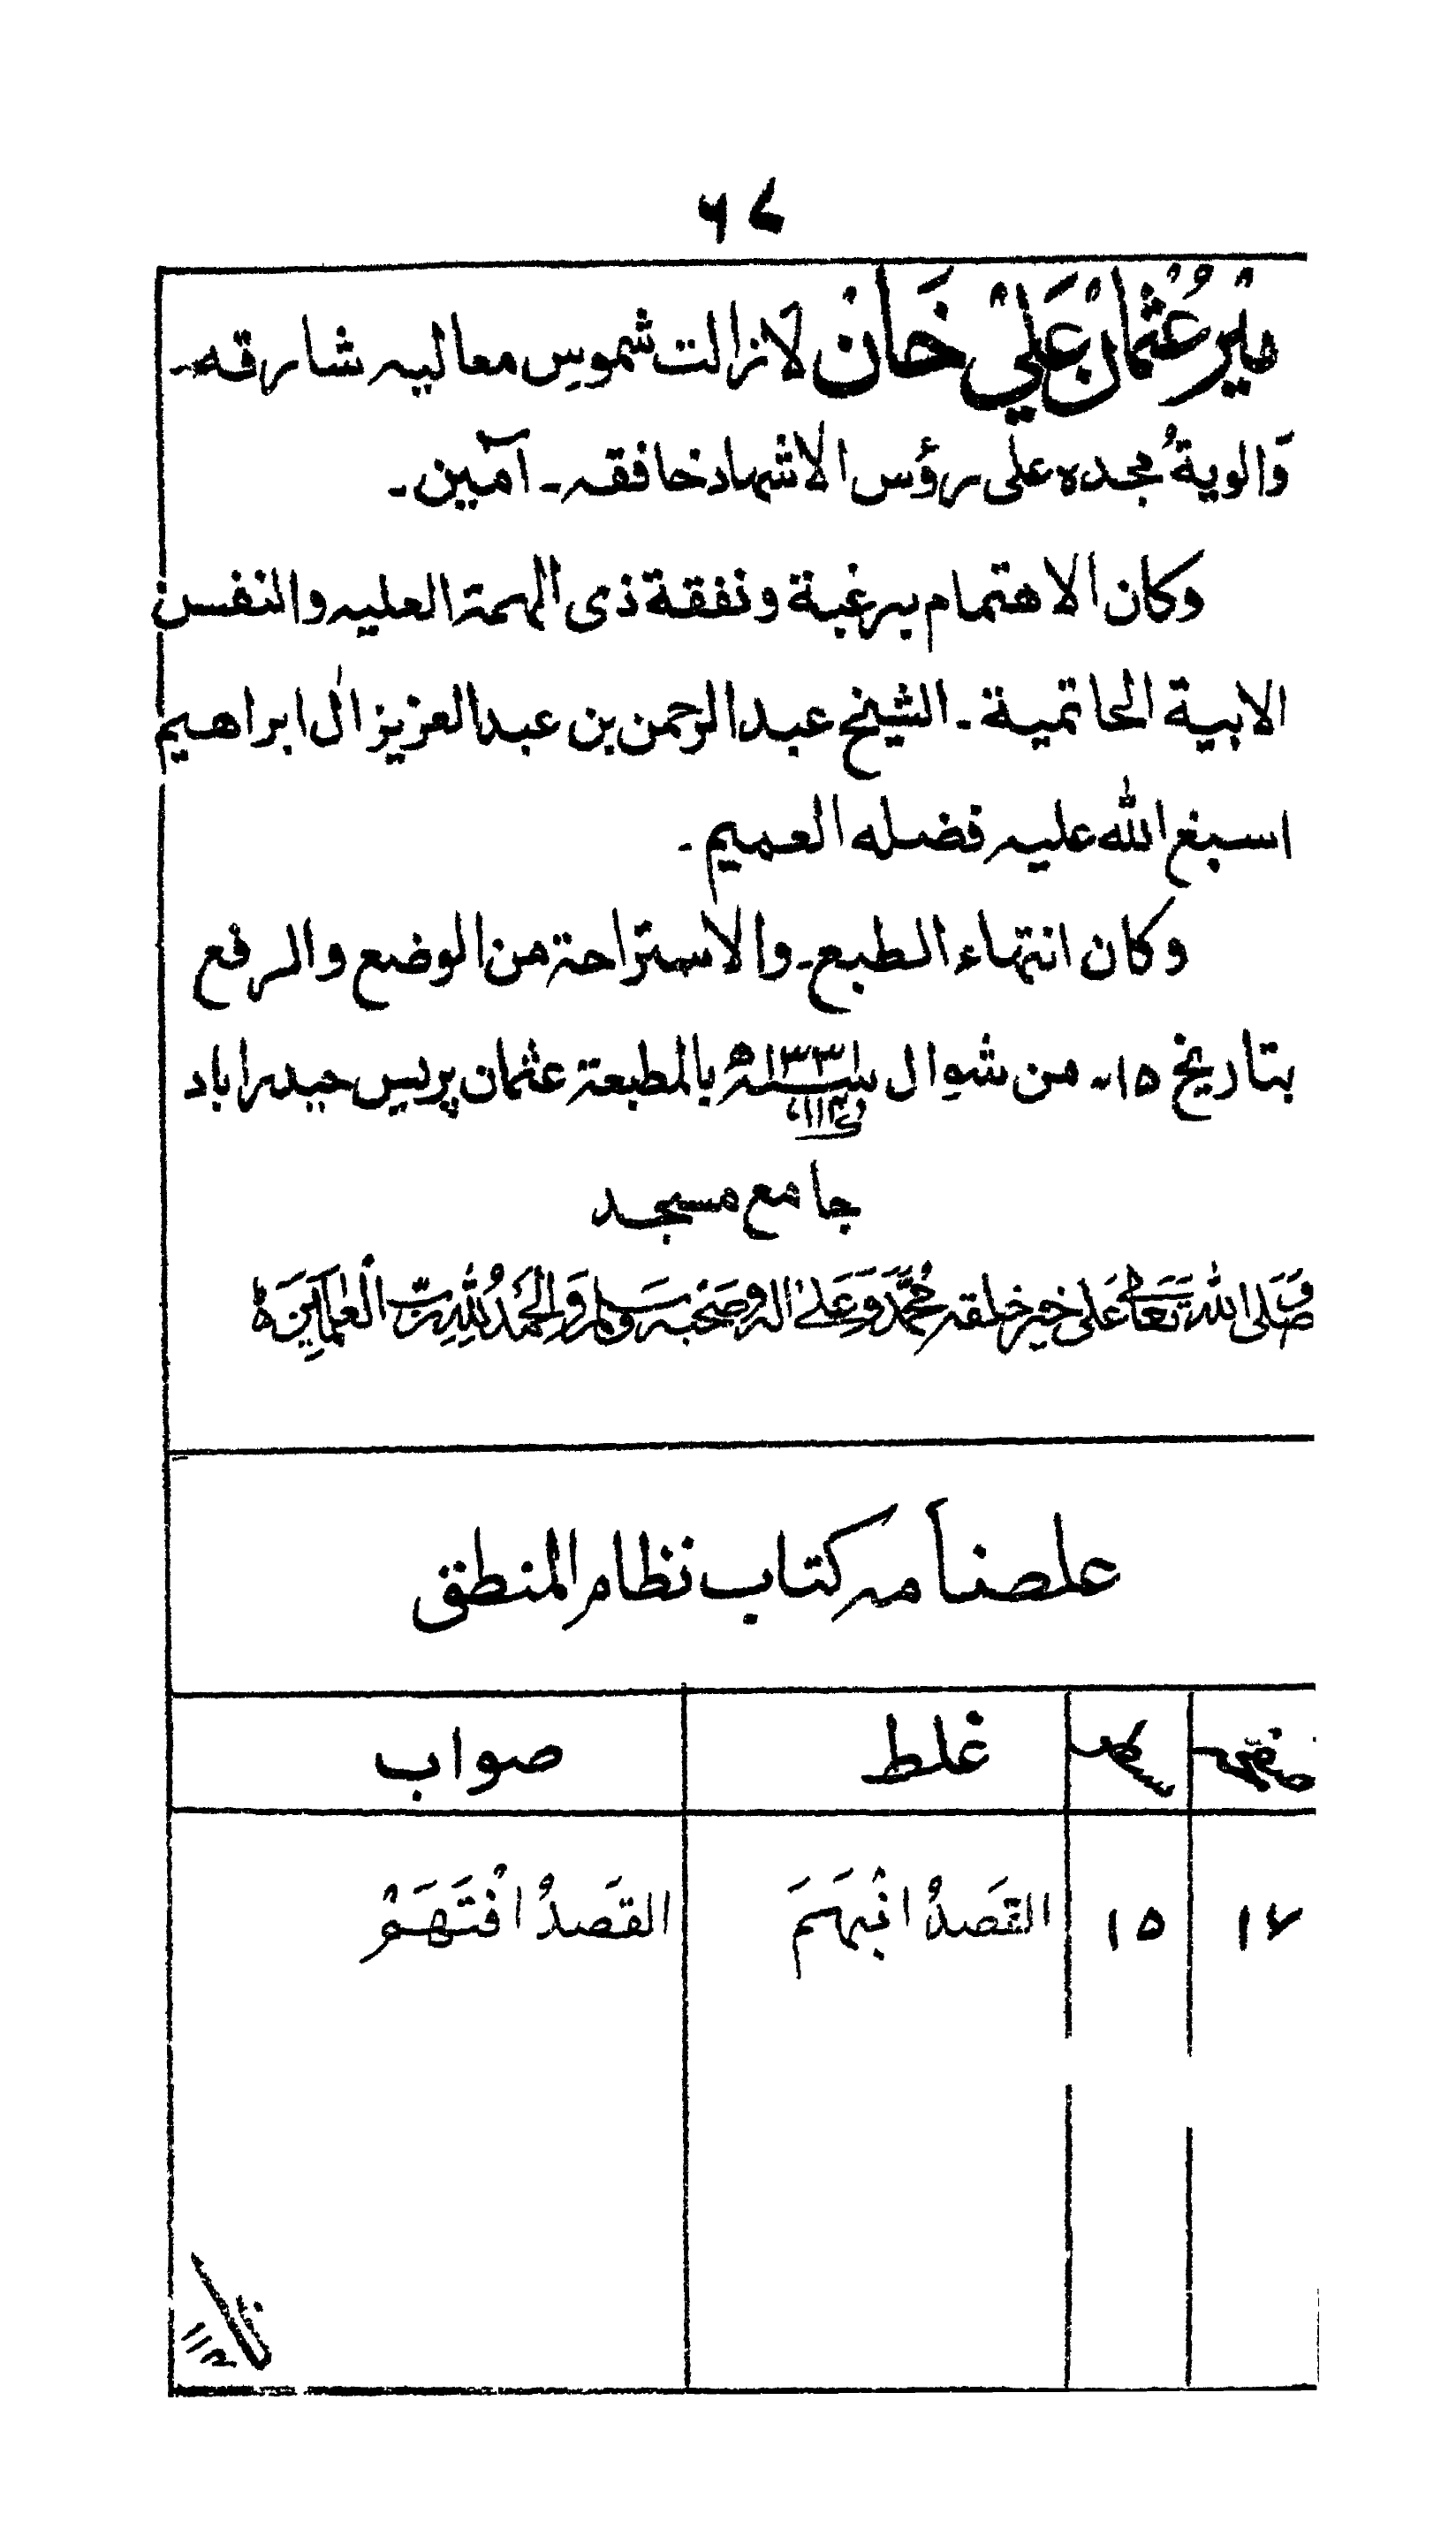 ۶۷
مْیرعُثْمَان عَلِیْ خَانْ لازالت شموس معالیہ شارقہ۔
وَالویةُ مجدہ علی رؤس الاشہاد خافقہ۔ آمین۔
وکان الاہتمام برغبة ونفقة ذی الہمۃ العلیہ والنفس
الابیة الحاتمیة۔ الشیخ عبدالرحمن بن عبدالعزیز ال ابراہیم
اسبغ اللہ علیہ فضلہ العمیم۔
وکان انتہاء الطبع۔ والاستراحۃ من الوضع والرفع
بتاریخ ۱۵۔ من شوال ۱۳۳۱ھ بالمطبعۃ عثمان پریس حیدراباد
جامع مسجد
وَصَلَی اللہ تَعَالیٰ عَلی خیرخلقہ مُحَمَّد وَعَلیٰ اٰلہ وصَحْبہ وَسلم وَالحَمْدُ لِلّٰہِ رَبِّ الْعٰلَمِیْنَ
کتاب نظام المنطق
صفحہ سطر غلط صواب
۱۷ ۱۵ القَصدُ انْبَهَمَ القَصدُ افْتَهَمْ